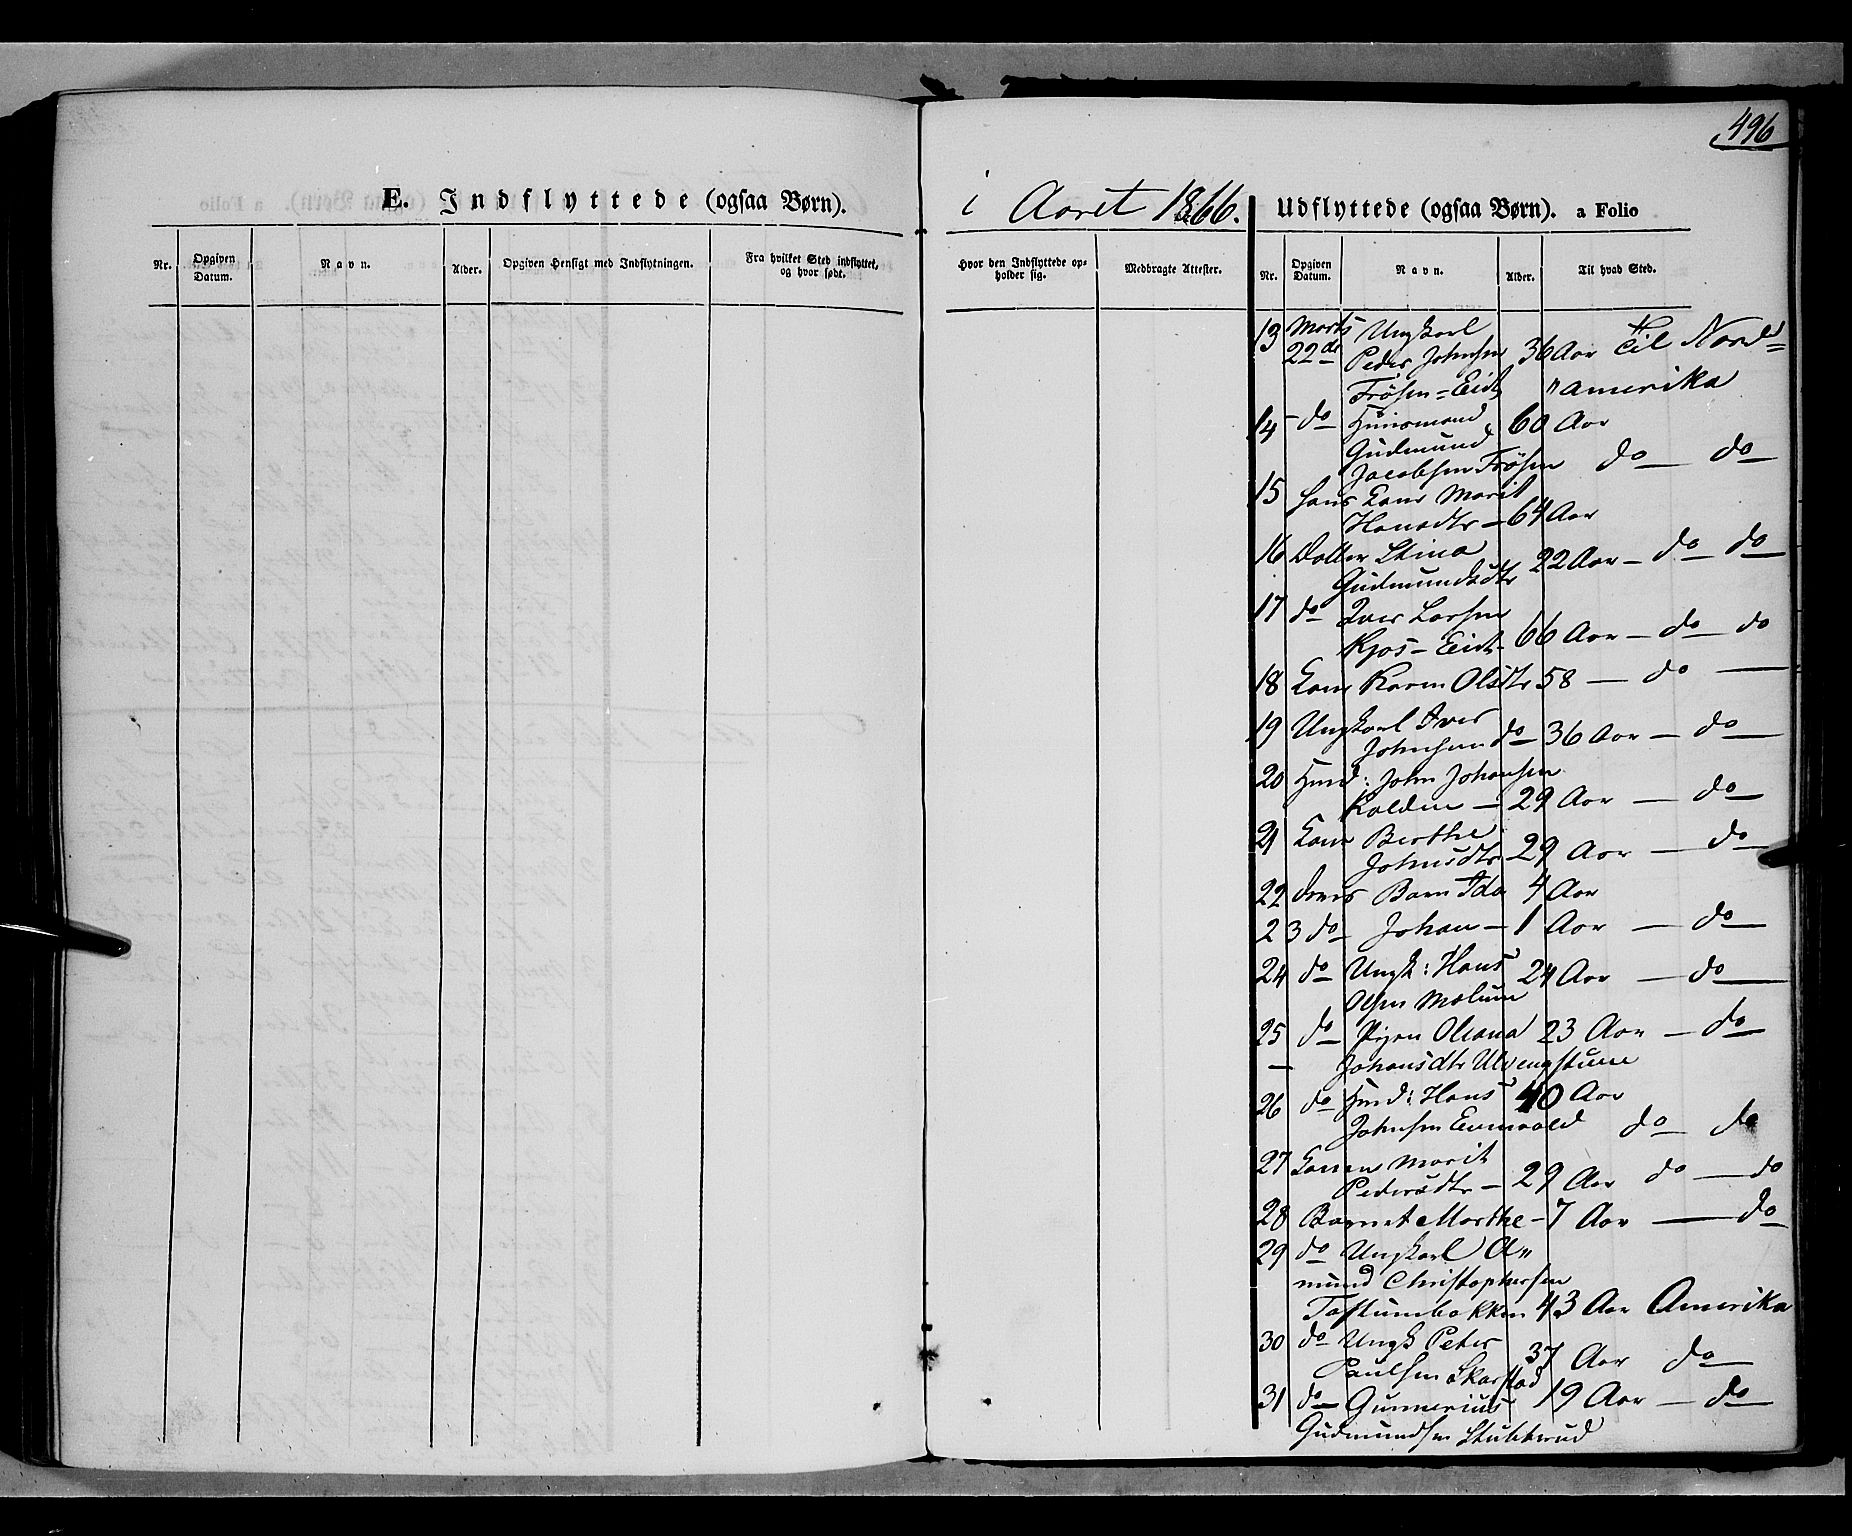 496
E. Indflyttede (ogsaa Børn).
i Aaret 1866.
Udflyttede (ogsaa Børn). a Folio
Nr. Opgiven Datum. Navn. Alder. Opgiven Hensigt med Indflytningen. Fra hvilket Sted indflyttet, og hvor født.
Hvor den Indflyttede opholder sig. Medbragte Attester.
Nr. Opgiven Datum. Navn. Alder. Til hvad Sted.
13 Marts Ungkarl
22de Peder Johnsen 36 Aar Til Nord=
Frøsen=Eid "amerika
14 do Huusmand 60 Aar
Gudmund
Jacobsen Frøsen do do
15 hans Kone Marit
Hansdtr 64 Aar
16 Datter Stina
Gudmundsdtr 22 Aar - do do
17 do Iver Larsen
Kjos - Eid - 66 Aar - do - do
18 Kone Karen Olsdtr 58 - do -
19 Ungkarl Iver
Johnsen do 36 Aar - do
20 Hmd: John Johansen
Kolden - 29 Aar - do
21 Kone Berthe
Johnsdtr - 29 Aar - do
22 deres Barn Ida 4 Aar
23 do Johan - 1 Aar - do
24 do Ungk: Hans 24 Aar - do
Olsen Mælum
25 do Pigen Oleana 23 Aar - do
- Johansdtr Ulvengstuen
26 do Hmd: Hans 40 Aar
Johnsen do do
27 Konen Marit
Pedersdtr - 29 Aar do - do
28 Barnet Marthe - 7 Aar - do
29 do Ungkarl A"
mund Christophersen
Toftumbakken 43 Aar Amerika
30 do Ungk Peter
Paulsen Skarstad 37 Aar do
31 do Gunnerius 19 Aar - do
Gudmundsen Stubberud